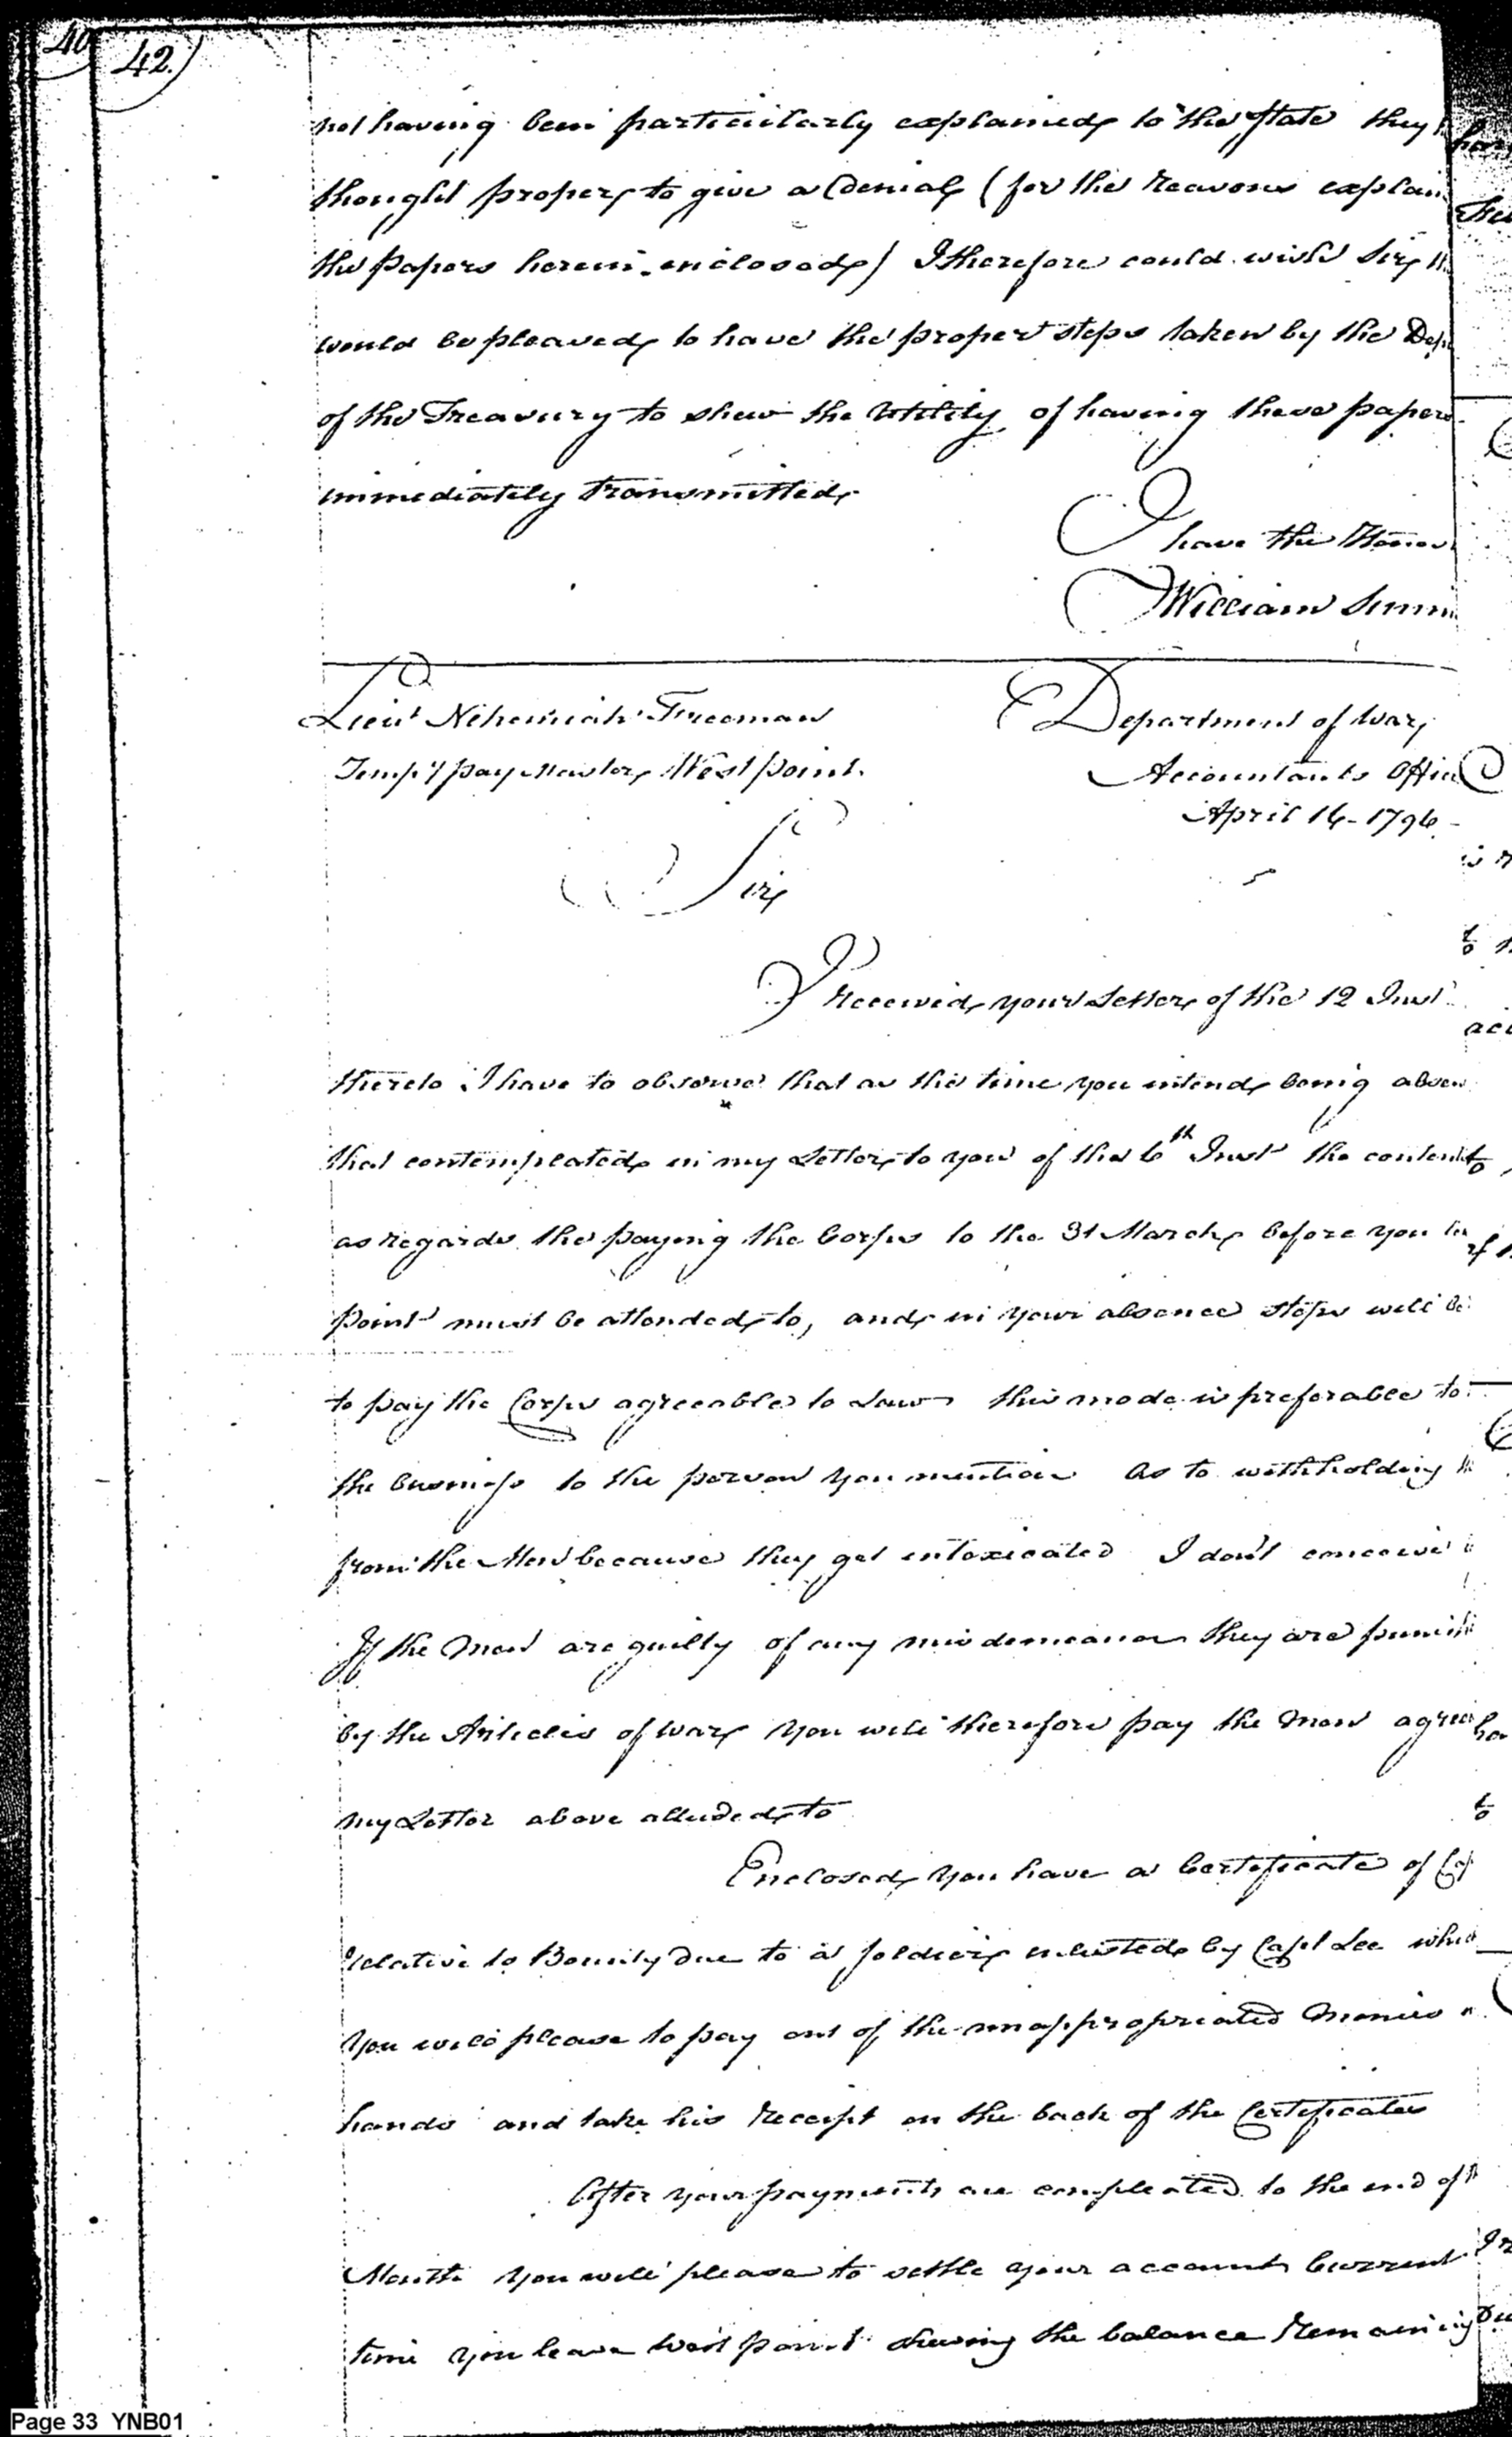 40
42.
not having been particularly explained to the State they
thought proper to give a Denial (for the reasons explain
the papers herein enclosed) I therefore could wish Sir
would be pleased to have the proper steps taken by the Dep
of the Treasury to shew the Utility of having these papers
immediately transmitted
I have the Honor
William Simm
Lieut Nehemiah Freeman
Department of War,
Tempy pay Master, West point.
Accountants Offic
April 16-1796-
Sir
I received your Letter of the 12 Inst
thereto I have to observe that as the time you intend being absen
that contemplated in my Letter to you of the 6th Inst the content
as regards the paying the Corps to the 31 March, before you
point must be attended to, and in your absence steps will be
to pay the Corps agreeable to Law this mode is preferable to
the business to the person you mention As to withholding
from the Men because they get intoxicated I don't conceive
If the Men are guilty of any misdemeanor they are punish
by the Articles of War, you will therefore pay the Men agree
my Letter above alluded to
Enclosed you have a Certificate of
relative to Bounty due to a Soldier enlisted by Capt Lee which
you will please to pay out of the unappropriated Monies
hands and take his Receipt on the back of the Certificates
After your payments are compleated to the end of
Month you will please to settle your account Current
time you leave West point shewing the balance Remaining
Page 33 YNB01